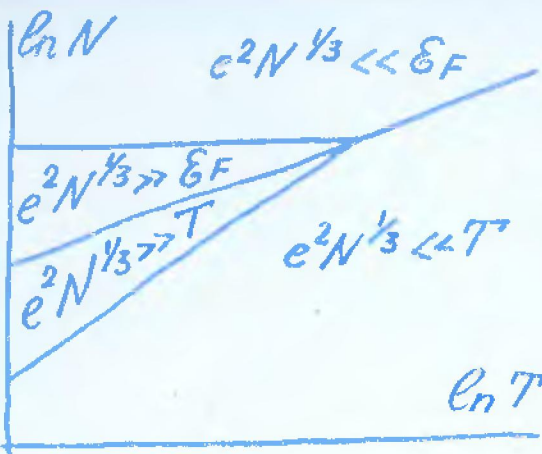 ln N
e²N^{1/3} << ℰF
e²N^{1/3} >> ℰF
e²N^{1/3} >> T
e²N^{1/3} << T
ln T